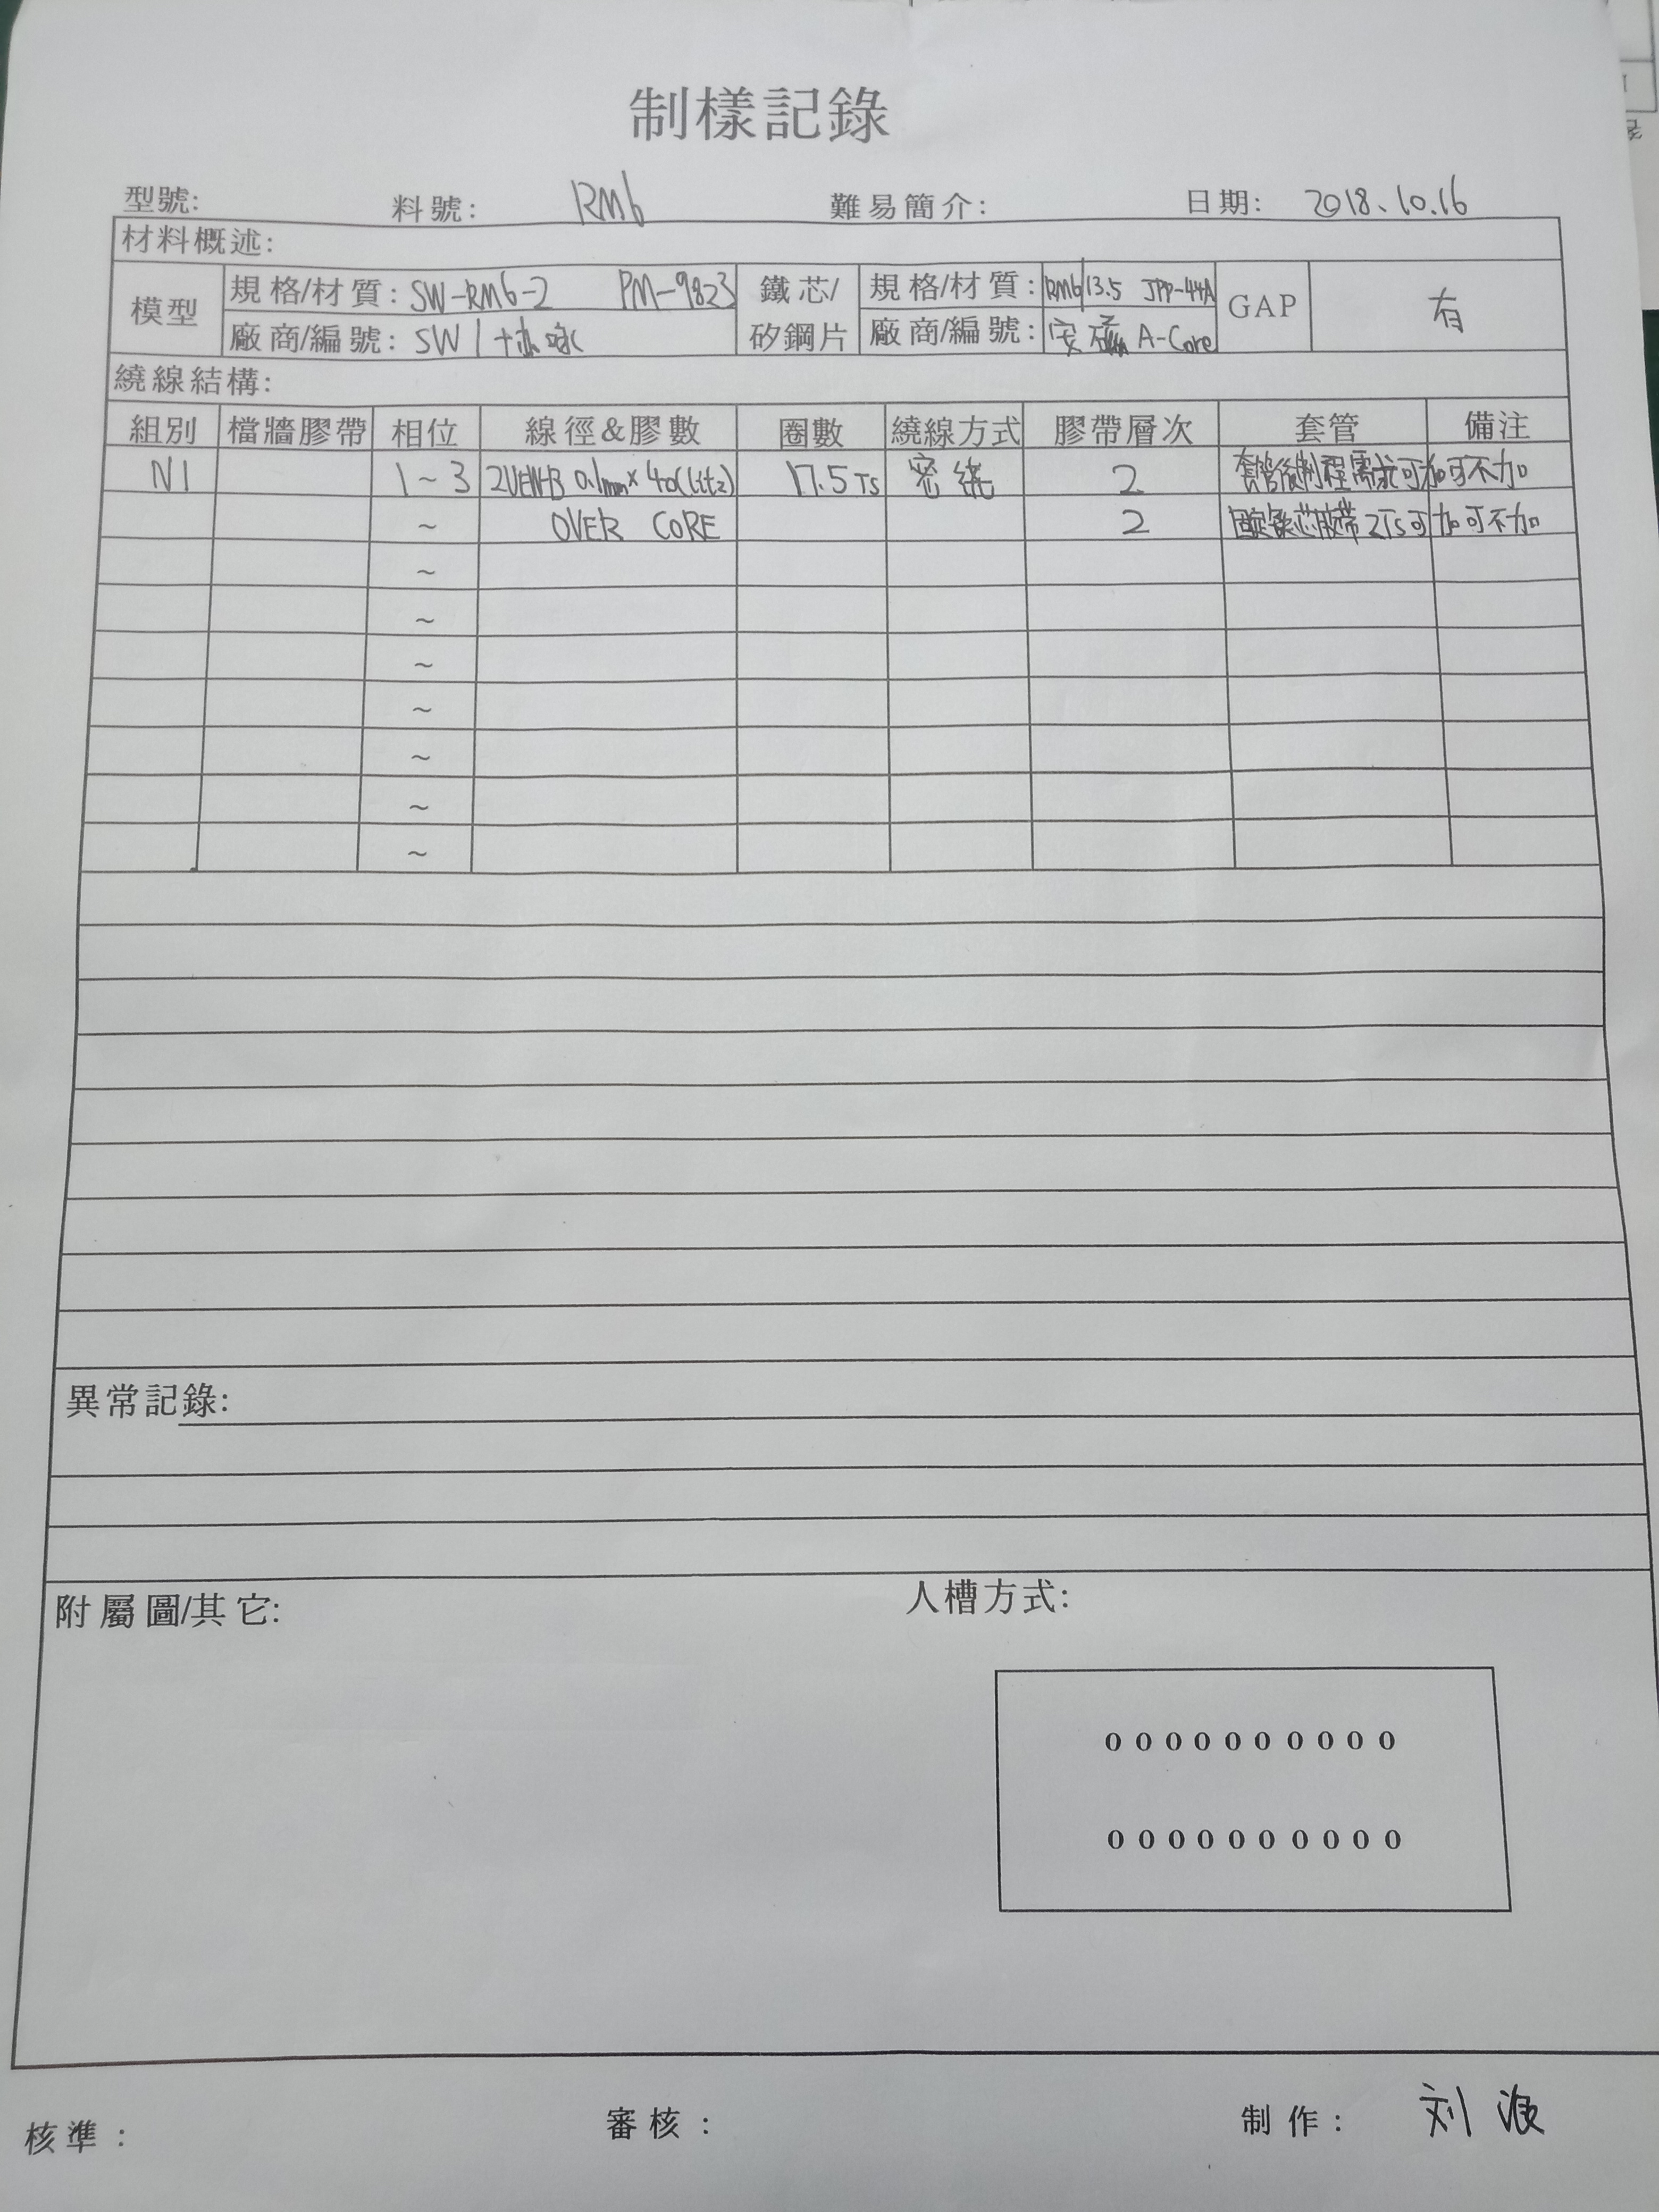 制樣記錄
型號: 料號: RM6 難易簡介: 日期: 2018.10.16
材料概述:
模型 規格/材質: SW-RM6-2 PM-9823 鐵芯/矽鋼片 規格/材質: RM6/13.5 JPP-44A GAP 有
廠商/編號: SW 廠商/編號: 安磁 A-Core
繞線結構:
組別 檔牆膠帶 相位 線徑&膠數 圈數 繞線方式 膠帶層次 套管 備注
N1 1~3 2UEW-B 0.1mm×40(litz) 17.5Ts 密繞 2 套管後制程需求可加可不加
~ OVER CORE 2 固定鐵芯胶带2Ts可加可不加
~
~
~
~
~
~
~
異常記錄:
附屬圖/其它: 人槽方式:
0 0 0 0 0 0 0 0 0 0
0 0 0 0 0 0 0 0 0 0
核準: 審核: 制作: 刘